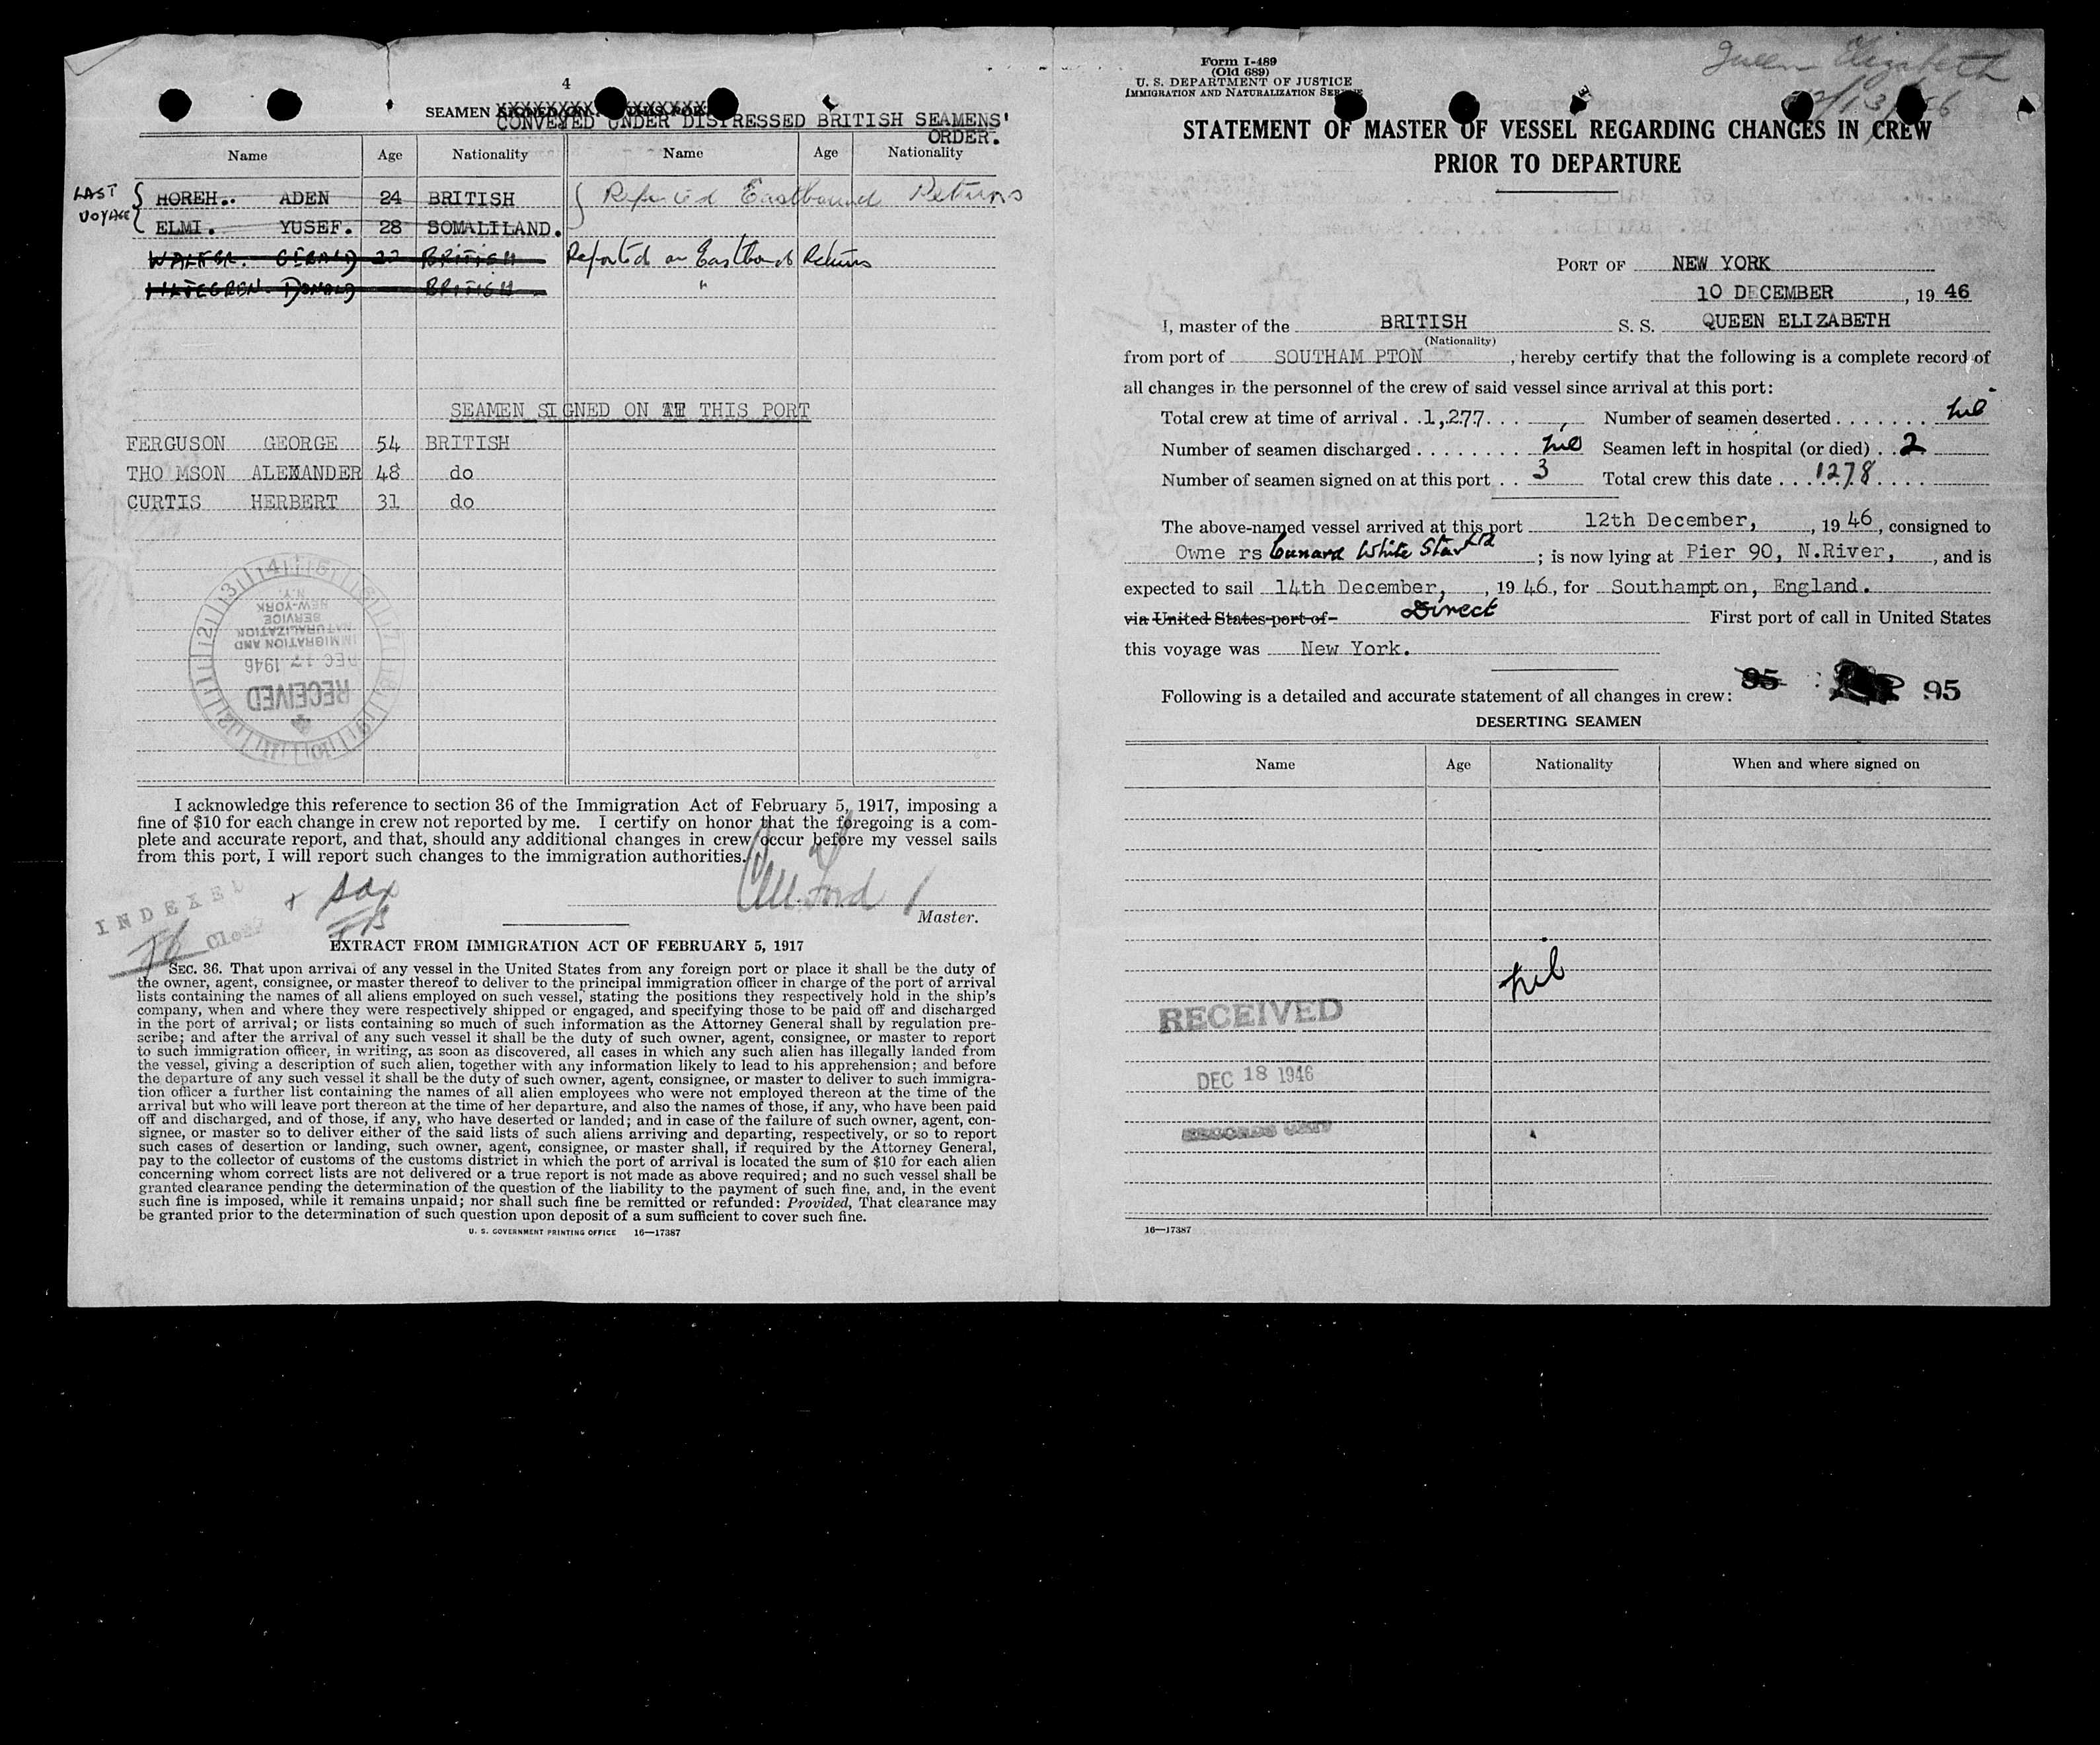 4
SEAMEN SIGNED ON AT THIS PORT
CONVEYED UNDER DISTRESSED BRITISH SEAMENS'
ORDER.
Name Age Nationality Name Age Nationality
LAST VOYAGE
HOREH.. ADEN 24 BRITISH Reported Eastbound Returns
ELMI. YUSEF. 28 SOMALILAND.
WALKER. GERALD BRITISH Reported on Eastbound Returns
DONALD BRITISH "
SEAMEN SIGNED ON AT THIS PORT
FERGUSON GEORGE 54 BRITISH
THO MSON ALEXANDER 48 do
CURTIS HERBERT 31 do
IMMIGRATION AND
NATURALIZATION
SERVICE
NEW-YORK
N.Y.
DEC 17 1946
RECEIVED
I acknowledge this reference to section 36 of the Immigration Act of February 5, 1917, imposing a
fine of $10 for each change in crew not reported by me. I certify on honor that the foregoing is a com-
plete and accurate report, and that, should any additional changes in crew occur before my vessel sails
from this port, I will report such changes to the immigration authorities.
Ford
Master.
INDEXED
EXTRACT FROM IMMIGRATION ACT OF FEBRUARY 5, 1917
SEC. 36. That upon arrival of any vessel in the United States from any foreign port or place it shall be the duty of
the owner, agent, consignee, or master thereof to deliver to the principal immigration officer in charge of the port of arrival
lists containing the names of all aliens employed on such vessel, stating the positions they respectively hold in the ship's
company, when and where they were respectively shipped or engaged, and specifying those to be paid off and discharged
in the port of arrival; or lists containing so much of such information as the Attorney General shall by regulation pre-
scribe; and after the arrival of any such vessel it shall be the duty of such owner, agent, consignee, or master to report
to such immigration officer, in writing, as soon as discovered, all cases in which any such alien has illegally landed from
the vessel, giving a description of such alien, together with any information likely to lead to his apprehension; and before
the departure of any such vessel it shall be the duty of such owner, agent, consignee, or master to deliver to such immigra-
tion officer a further list containing the names of all alien employees who were not employed thereon at the time of the
arrival but who will leave port thereon at the time of her departure, and also the names of those, if any, who have been paid
off and discharged, and of those, if any, who have deserted or landed; and in case of the failure of such owner, agent, con-
signee, or master so to deliver either of the said lists of such aliens arriving and departing, respectively, or so to report
such cases of desertion or landing, such owner, agent, consignee, or master shall, if required by the Attorney General,
pay to the collector of customs of the customs district in which the port of arrival is located the sum of $10 for each alien
concerning whom correct lists are not delivered or a true report is not made as above required; and no such vessel shall be
granted clearance pending the determination of the question of the liability to the payment of such fine, and, in the event
such fine is imposed, while it remains unpaid; nor shall such fine be remitted or refunded: Provided, That clearance may
be granted prior to the determination of such question upon deposit of a sum sufficient to cover such fine.
U. S. GOVERNMENT PRINTING OFFICE 16—17387
Queen Elizabeth
Form I-489
(Old 689)
U. S. DEPARTMENT OF JUSTICE
IMMIGRATION AND NATURALIZATION SERVICE
STATEMENT OF MASTER OF VESSEL REGARDING CHANGES IN CREW
PRIOR TO DEPARTURE
PORT OF NEW YORK
10 DECEMBER, 19 46
I, master of the BRITISH S. S. QUEEN ELIZABETH
(Nationality)
from port of SOUTHAM PTON, hereby certify that the following is a complete record of
all changes in the personnel of the crew of said vessel since arrival at this port:
Total crew at time of arrival . . 1,277. . . Number of seamen deserted . . . . . . . nil
Number of seamen discharged . . . . . . . . nil Seamen left in hospital (or died) . . 2
Number of seamen signed on at this port . . 3 Total crew this date . . . 1278 . . . .
The above-named vessel arrived at this port 12th December, , 19 46, consigned to
Owne rs Cunard White Star Ltd ; is now lying at Pier 90, N.River, , and is
expected to sail 14th December, , 19 46, for Southampton, England.
via United States port of Direct First port of call in United States
this voyage was New York.
Following is a detailed and accurate statement of all changes in crew: 95 95
DESERTING SEAMEN
Name Age Nationality When and where signed on
nil
RECEIVED
DEC 18 1946
RECORDS UNIT
16—17387